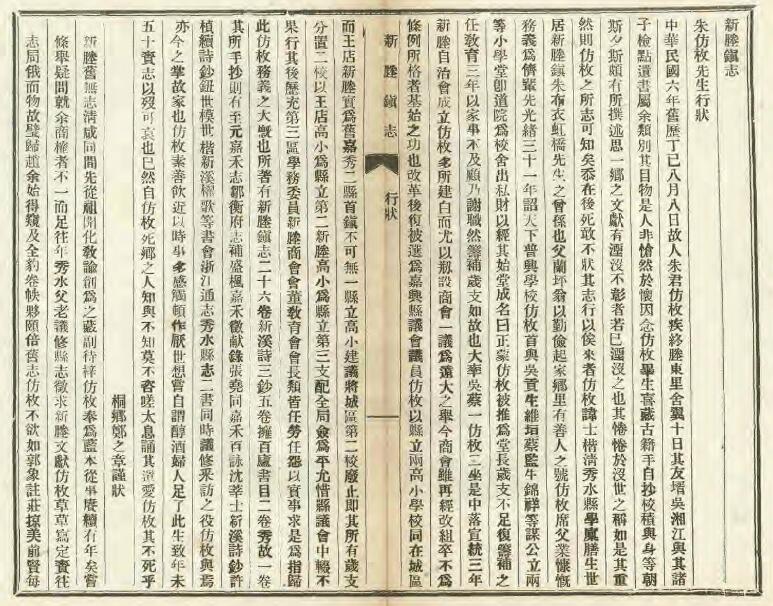 新塍鎮志
朱仿枚先生行狀
中華民國六年舊歷丁巳八月八日故人朱君仿枚疾終塍東里舍翼十日其友壻吳湘江與其諸
子檢點遺書屬余類別其目物是人非愴然於懷因念仿枚畢生喜藏古籍手自抄校積與身等朝
斯夕斯頗有所撰述思一鄉之文獻有湮沒不彰者若已湮沒之也其惓惓於沒世之稱如是其重
然則仿枚之所志可知矣忝在後死敢不狀其志行以俟來者仿枚諱士楷清秀水縣學廩膳生世
居新塍鎮朱布衣虹橋先生之曾孫也父蘭坪翁以勤儉起家鄉里有善人之號仿枚席父業慷慨
務義爲儕輩先光緒三十一年詔天下普興學校仿枚首與吳貢生維垣蔡監生錦祥等謀公立兩
等小學堂卽道院爲校舍出私財以經其始堂成名曰正蒙仿枚被推爲堂長歲支不足復籌補之
任敎育三年以家事不及顧乃謝職然籌補歲支如故也大率吳蔡一仿枚二坐是中落宣統三年
新塍自治會成立仿枚多所建白而尤以剏設商會一議爲遠大之舉今商會雖再經改組卒不爲
條例所格者基始之功也改革後復被選爲嘉興縣議會議員仿枚以縣立兩高小學校同在城區
新塍鎮志
行狀
而王店新塍實爲舊嘉秀二縣首鎮不可無一縣立高小建議將城區第二校廢止卽其所有歲支
分置二校以王店高小爲縣立第二新塍高小爲縣立第三支配全局僉爲平允惜縣議會中輟不
果行其後歷充第三區學務委員新塍商會會董敎育會會長類皆任勞任怨以實事求是爲指歸
此仿枚務義之大槪也所著有新塍鎮志二十六卷新溪詩三鈔五卷擁百廬書目二卷秀故一卷
其所手抄則有至元嘉禾志鄒衡府志補盛楓嘉禾徵獻錄張堯同嘉禾百詠沈莘士新溪詩鈔許
楨續詩鈔鈕世模世楷新溪櫂歌等書會浙江通志秀水縣志二書同時議修釆訪之役仿枚與焉
亦今之掌故家也仿枚素善飲近以時事多感觸頓作厭世想嘗自謂醇酒婦人足了此生致年未
五十賫志以歿可哀也已然自仿枚死鄉之人知與不知莫不咨嗟太息誦其遺愛仿枚其不死乎
桐鄉鄭之章謹狀
新塍舊無志清咸同間先從祖開化敎諭創爲之藏副待梓仿枚奉爲藍本從事賡續有年矣嘗
條舉疑問就余商榷者不一而足往年秀水父老議修縣志徵求新塍文獻仿枚草草寫定賫往
志局俄而物故璧歸趙余始得窺及全豹卷帙夥頤倍舊志仿枚不欲如郭象註莊掠美前賢每